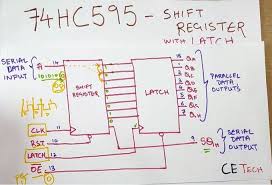 74HC595 - SHIFT
REGISTER
WITH LATCH
SERIAL DATA
INPUT
A
14
SHIFT
REGISTER
LATCH
15
QA
1
QB
2
QC
3
QD
4
QE
5
QF
6
QG
7
QH
PARALLEL
DATA
OUTPUTS
CLK
11
RST
10
LATCH
12
OE
13
9
SQH
SERIAL
DATA
OUTPUT
CE TECH